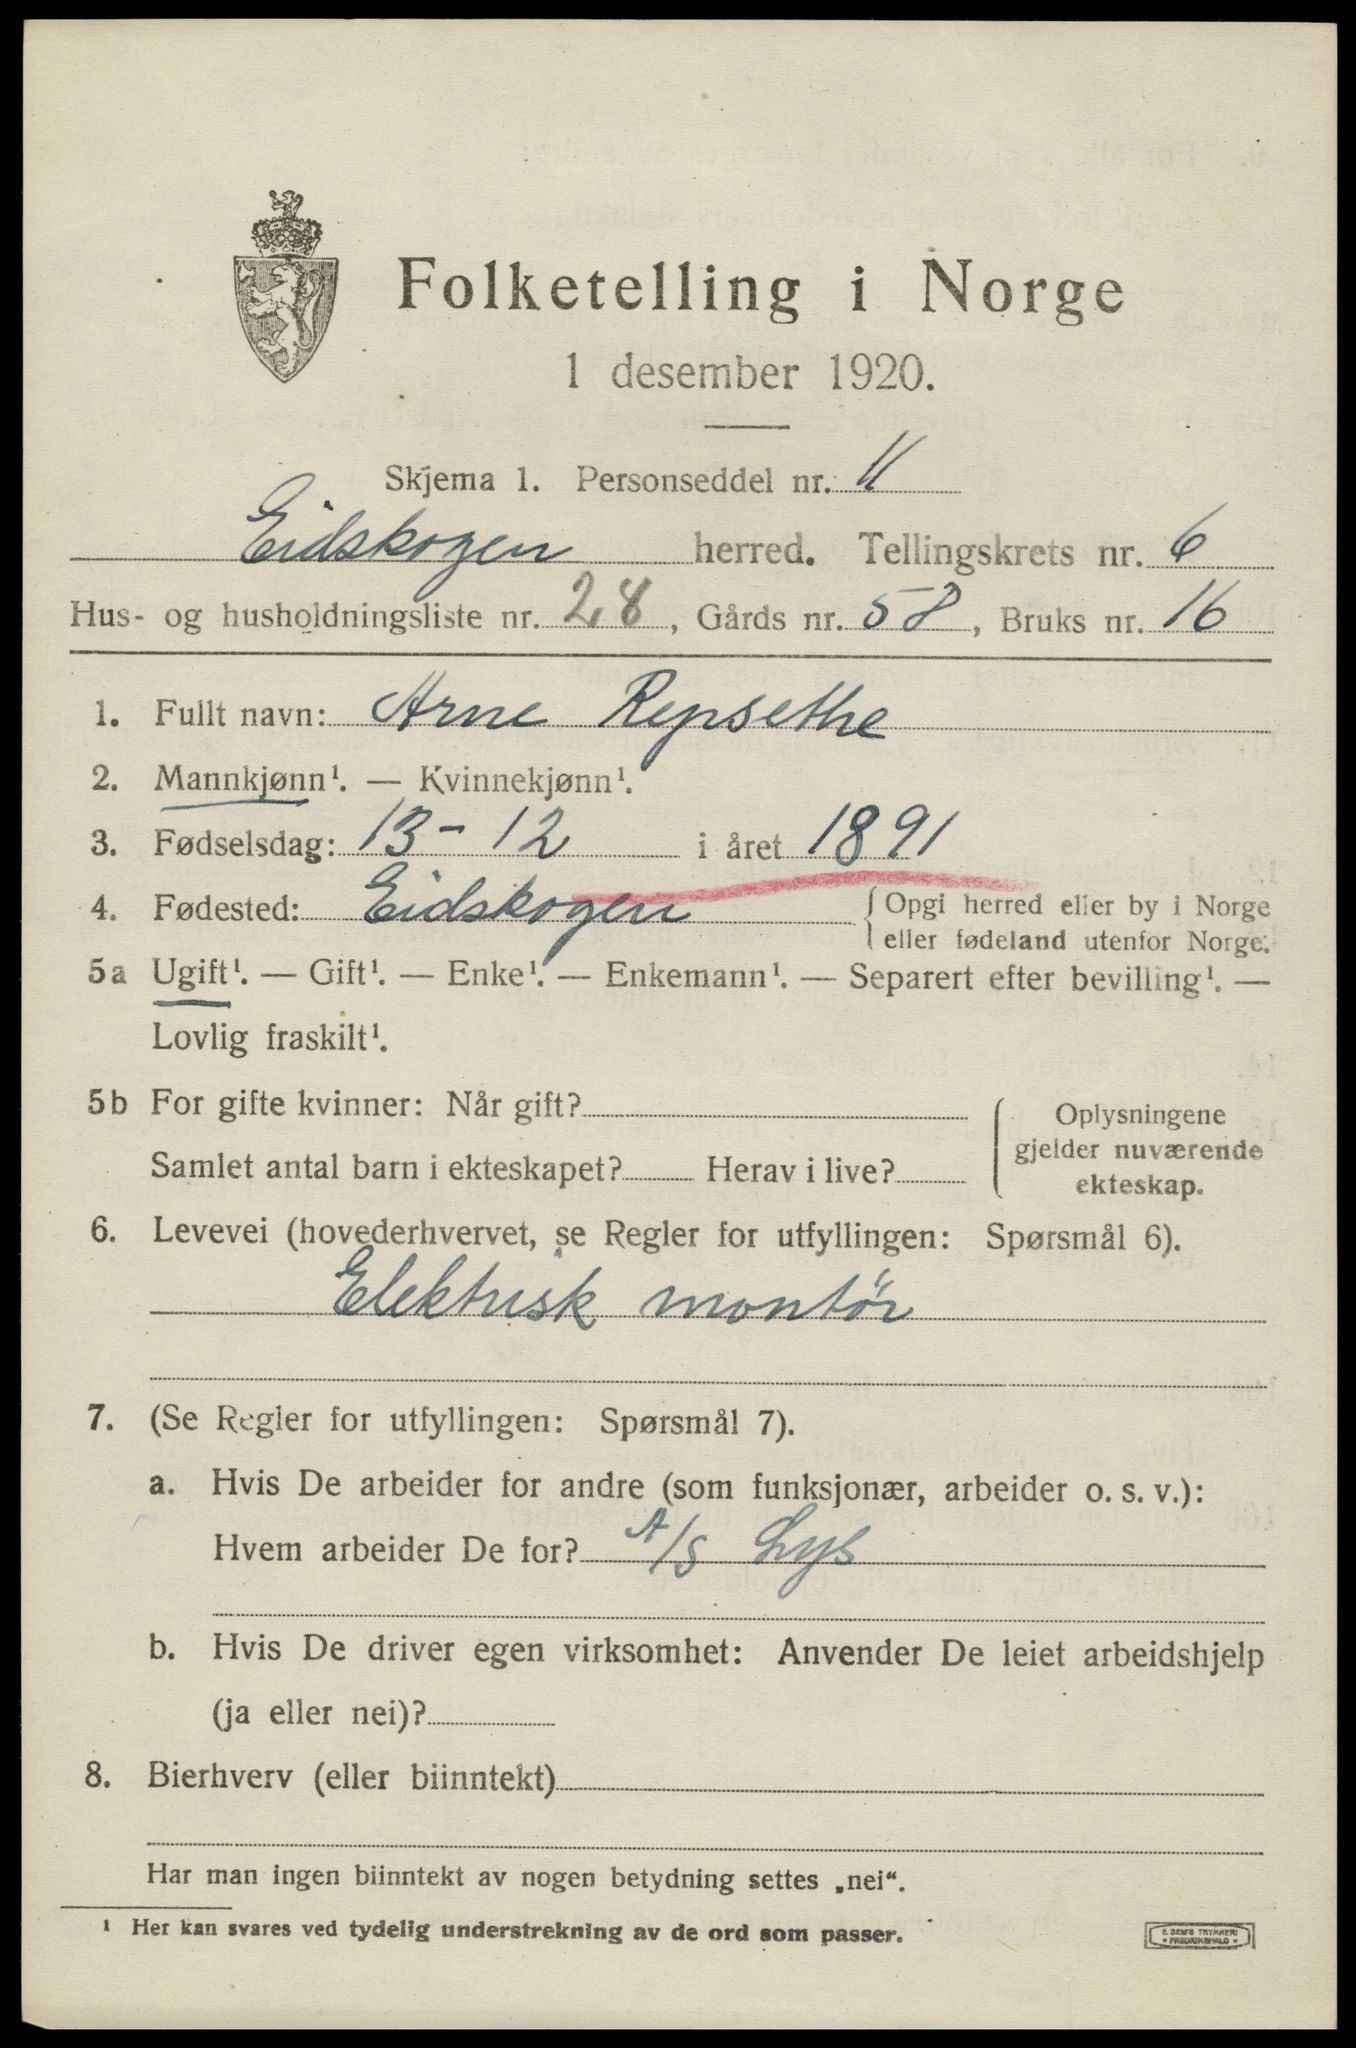 Folketelling i Norge
1 desember 1920.
Skjema 1. Personseddel nr. 11
Eidskogen herred. Tellingskrets nr. 6
Hus- og husholdningsliste nr. 28, Gårds nr. 58, Bruks nr. 16
1. Fullt navn: Arne Repsethe
2. Mannkjønn¹. — Kvinnekjønn¹.
3. Fødselsdag: 13-12 i året 1891
4. Fødested: Eidskogen {Opgi herred eller by i Norge
eller fødeland utenfor Norge.
5a Ugift¹. — Gift¹. — Enke¹. — Enkemann¹. — Separert efter bevilling¹. —
Lovlig fraskilt¹.
5b For gifte kvinner: Når gift?
Samlet antal barn i ekteskapet? Herav i live?
Oplysningene
gjelder nuværende
ekteskap.
6. Levevei (hovederhvervet, se Regler for utfyllingen: Spørsmål 6).
Elektrisk montör
7. (Se Regler for utfyllingen: Spørsmål 7).
a. Hvis De arbeider for andre (som funksjonær, arbeider o. s. v.):
Hvem arbeider De for? A/S Lys
b. Hvis De driver egen virksomhet: Anvender De leiet arbeidshjelp
(ja eller nei)?
8. Bierhverv (eller biinntekt)
Har man ingen biinntekt av nogen betydning settes „nei“.
¹ Her kan svares ved tydelig understrekning av de ord som passer.
E. SEMS TRYKKERI
FREDRIKSHALD